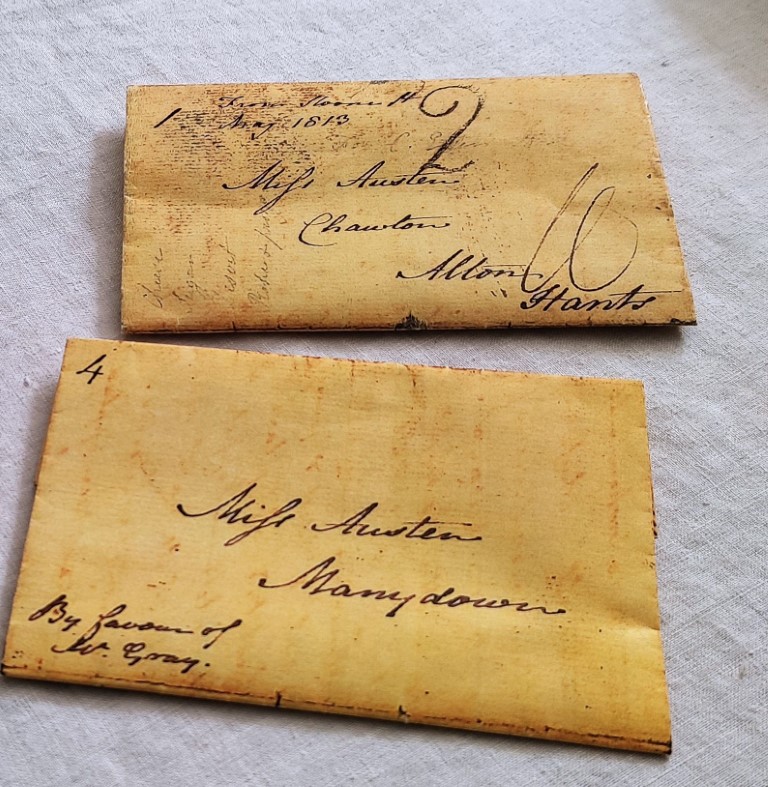 1
From Sloane St
May 1813
2
Miſs Austen
Chawton
Alton
Hants
4
Miſs Austen
Manydown
By favour of
Mr. Gray.